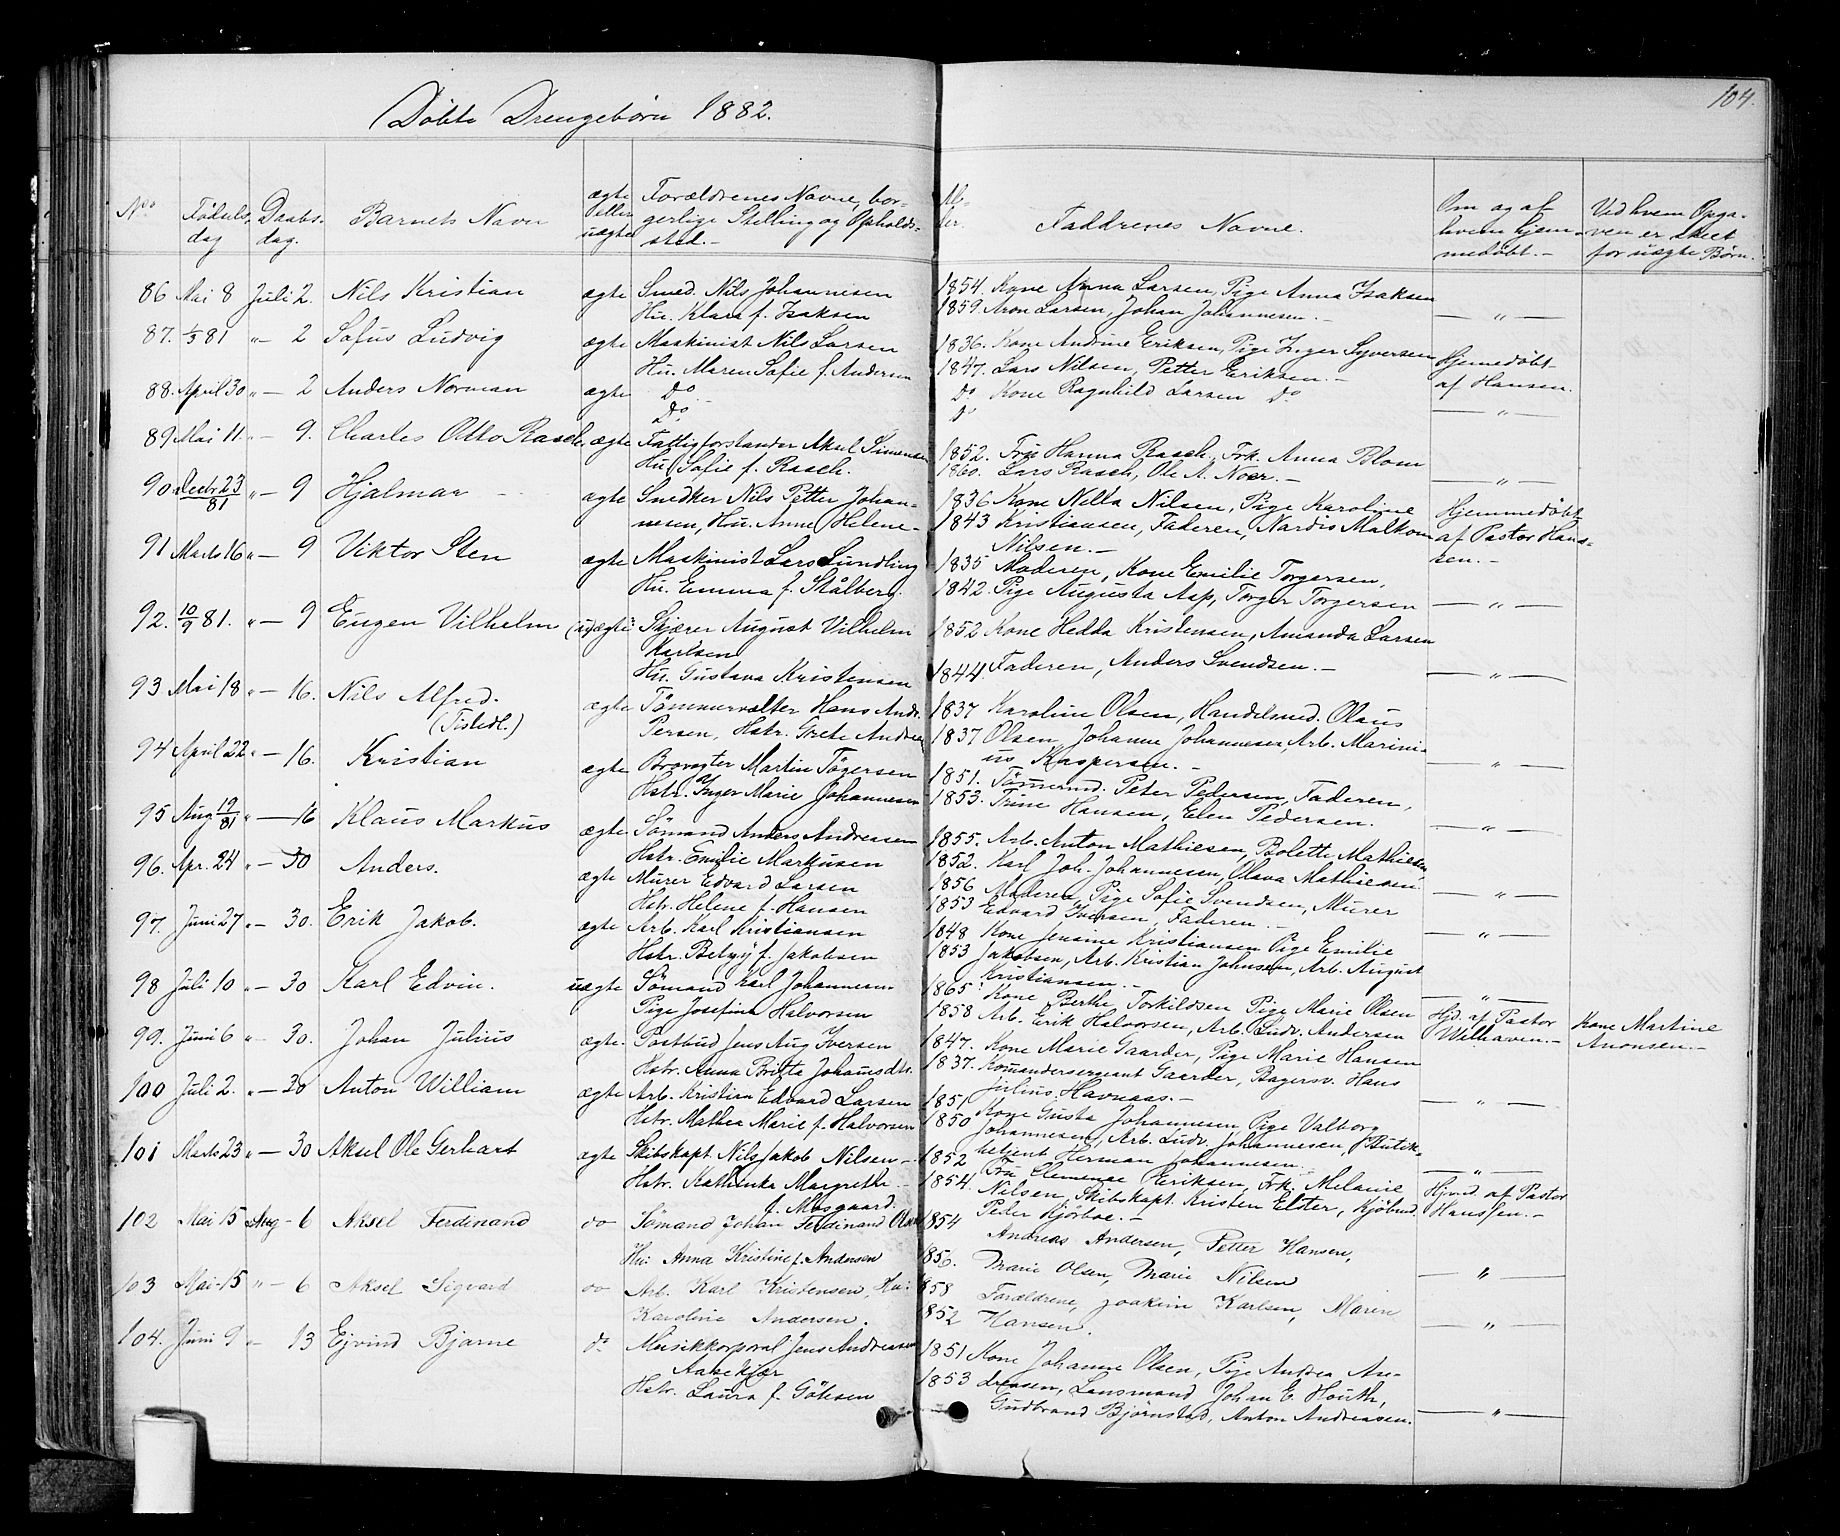 104.
Döbte Drengebörn 1882.
No. Fødsels dag Daabs dag. Barnets Navn ægte eller uægte Forældrenes Navne, borgerlige Stilling og Opholdssted.- Al- der. Faddrenes Navne. Om og af hvem hjemmedøbt.- Ved hvem Opgaven er skeet for uægte Børn.
86 Mai 8 Juli 2. Nils Kristian ægte Smed. Nils Johannesen 1854. Kone Anna Larsen, Pige Anna Isaksen
Hu. Klara f. Isaksen 1859. Aron Larsen, Johan Johannesen.- — " —
87. 1/3 81 " - 2 Sofus Ludvig ægte Maskinist Nils Larsen 1836. Kone Andrine Eriksen, Pige Inger Syversen Hjemedøbt
Hu. Maren Sofie f. Andersen 1847. Lars Nilsen, Petter Eriksen.- af Hansen.
88. April 30 " - 2 Anders Norman ægte Do Do Kone Ragnhild Larsen Do
Do Do — " —
89 Mai 11. " - 9. Charles Otto Rasch. ægte Fattigforstander Aksel Simensen 1852. Fru Hanna Rasch, Frk. Anna Blom
Hu. Sofie f. Rasch. 1860. Lars Rasch, Ole A. Noer.- — " —
90 Decbr 23/81 " - 9 Hjalmar ægte Snedker Nils Petter Johan- 1836 Kone Nilla Nilsen, Pige Karoline Hjemmedøbt
nesen, Hu. Anne Helene- 1843 Kristiansen, Faderen, Nardis Malkom af Pastor Hans-
Nilsen.- sen.-
91 Marts 16 " - 9 Viktor Sten ægte Maskinist Lars Lundling 1835 Moderen, Kone Emilie Torgersen,
Hu. Emma f. Stålberg. 1842. Pige Augusta Aap, Torger Torgersen — " —
92. 10/9 81. " - 9 Eugen Vilhelm (u)ægte Skjærer August Vilhelm 1852 Kone Hedda Kristensen, Amanda Larsen
Karlsen
Hu. Gustava Kristensen 1844. Faderen, Anders Svendsen.- — " —
93 Mai 18 " - 16. Nils Alfred. ægte Tömmervalter Hans Andr. 1837 Karoline Olsen, Handelsmed. Olaus
(Tistedl.) Persen, Hstr. Grete Andrea 1837 Olsen, Johanne Johannesen, Arb. Marini-
us Kaspersen.- — " —
94 April 22 " - 16. Kristian ægte Brovogter Martin Tögersen 1851. Tömermd. Peter Pedersen, Faderen,
Hstr. Inger Marie Johannesen 1853. Trine Hansen, Elen Pedersen. — " —
95 Aug 19/81 " — 16 Klaus Markus ægte Sömand Anders Andreasen 1855. Arb. Anton Mathiesen, Bolette Mathiesen
Hstr. Emilie Markusen 1852. Karl Joh. Johannesen, Olava Mathiesen. — " —
96. Apr. 24 " - 30 Anders. ægte Murer Edvard Larsen 1856 Moderen, Pige Sofie Svendsen, Murer
Hstr. Helene f. Hansen 1853 Edvard Iversen, Faderen.- — " —
97. Juni 27 " - 30. Erik Jakob. ægte Arb. Karl Kristiansen 1848 Kone Jensine Kristiansen Pige Emilie
Hstr. Betzy f. Jakobsen 1853 Jakobsen, Arb. Kristian Johnsen, Arb. August
Kristiansen.- — " —
98 Juli 10 " - 30 Karl Edvin. uægte Sömand Karl Johannesen- 1865. Kone Berthe Torkildsen Pige Marie Olsen Hjd. af Pastor Kone Martine
Pige Josefine Halvorsen 1858 Arb. Erik Halvorsen, Arb. Ludv. Andersen Wilhaven.- Aronsen.-
99. Juni 6 " - 30. Johan Julius ægte. Postbud Jens Aug Iversen 1847. Kone Marie Gaarder, Pige Marie Hansen
Hstr. Anna Britta Johansdtr. 1837. Komandersergeant Gaarder, Bagersv. Hans
Julius Havnaas.- — " —
100 Juli 2. " - 30 Anton William ægte Arb. Kristian Edvard Larsen 1851 Kone Gusta Johannesen, Pige Valborg
Hstr. Mathea Marie f. Halvorsen 1850 Johannesen, Arb. Ludv. Johannesen, Butik-
betjent Herman Johannesen.- — " —
101 Marts 23 " - 30 Aksel Ole Gerhart ægte Skibskapt. Nils Jakob Nilsen- 1852 Fru Clemense Eriksen, Frk. Melanie Hjmd. af Pastor
Hstr. Kathinka Margrethe- 1854. Nilsen, Skibskapt. Kristen Elster, Kjöbmd. Hanssen.-
f. Mosgaard. Peter Kjörboe.-
102 Mai 15 Aug - 6 Aksel Ferdinand do Sömand Johan Ferdinand Olsen 1854 Andreas Andersen, Petter Hansen,
Hu: Anna Kristine f. Andersen 1856. Marie Olsen, Marie Nilsen — " —
103 Mai-15 " - 6 Aksel Sigvard do Arb. Karl Kristensen, Hu: 1858 Forældrene, Joakim Karlsen, Maren
Karoline Andersen. 1852 Hansen. — " —
104. Juni 9 " - 13 Ejvind Bjarne do Musikkorporal Jens Andreasen 1851 Kone Johanne Olsen, Pige Andrea An-
Aabekjær 1853 dreasen, Lansmand Johan E. Houth,
Hstr. Laura f. Göthsen Gudbrand Björnstad, Anton Andreasen. — " —